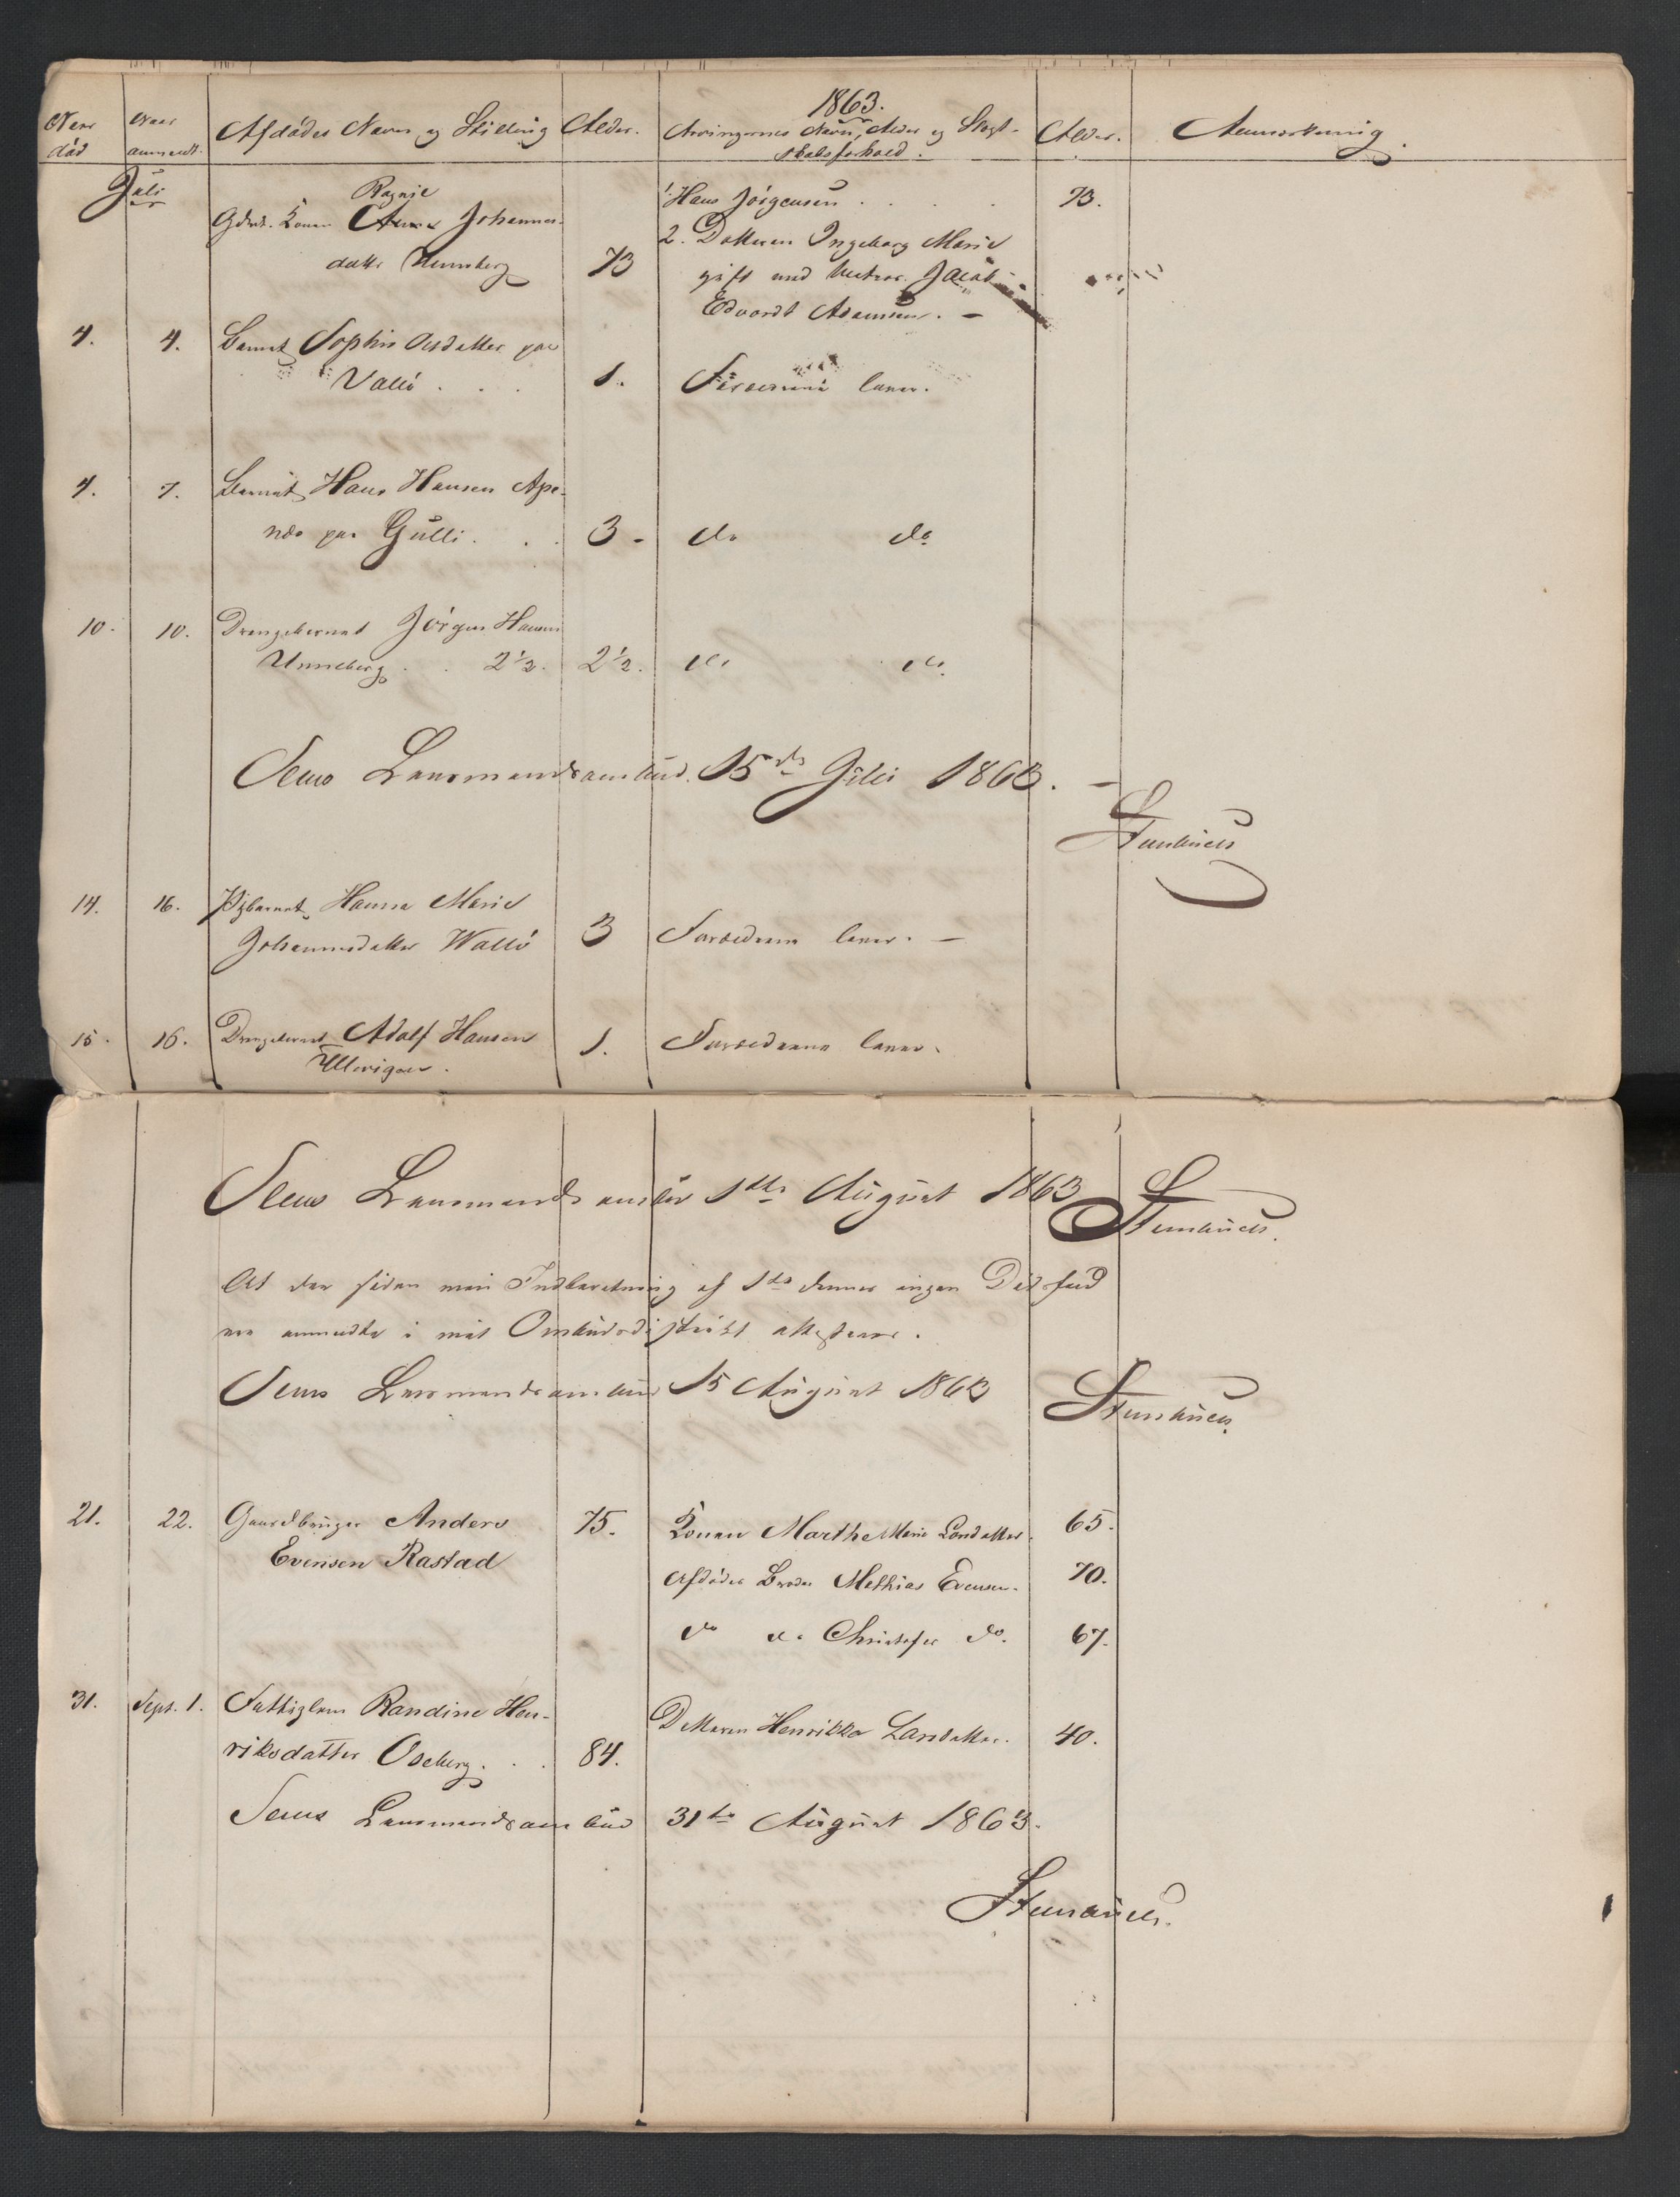 1863.
Naar død
Naar anmeldt.
Afdødes Navn og Stilling
Alder.
Arvingernes Navn, Alder og Slægt-
skabsforhold.
Alder.
Anmærkning.
Juli
Ragnil
Gdmd. Konen Anne Johannes-
datter Unneberg
73
1. Hans Jörgensen . . . . 73.
2. Datteren Ingeborg Marie
gift med Jacob
Edvardt Adamsen. –
4. 4. Barnet Sophie Olsdatter paa
Vallö . . . 1. Forældrene lever.
4. 7. Barnet Hans Hansen Ape-
næs paa Gulli . . . 3 - do do
10. 10. Drengebarnet Jörgen Hansen
Unneberg . . 2½. 2½. do do
Sems Lensmandsombud 15de Juli 1863. –
Stenbuch
14. 16. Pigebarnet Hanna Marie
Johannesdatter Wallö 3 Forældrene lever. –
15. 16. Drengebarnet Adolf Hansen 1. Forældrene lever.
Ullevigen.
Sems Lensmandsombud 1ste August 1863
Stenbuch.
At der siden min Indberetning af 1ste dennes ingen Dødsfald
ere anmeldte i mit Ombudsdistrikt attesteres.
Sems Lensmandsombud 15 August 1863
Stenbuch.
21. 22. Gaardbruger Anders 75. Konen Marthe Marie Larsdatter. 65.
Evensen Rastad Afdødes Broder Mathias Evensen. 70.
do do Christofer do. 67.
31. Sept. 1. Fattiglem Randine Hen-
riksdatter Oseberg . . . 84. Datteren Henrikka Larsdatter. 40.
Sems Lensmandsombud 31te August 1863.
Stenbuch.